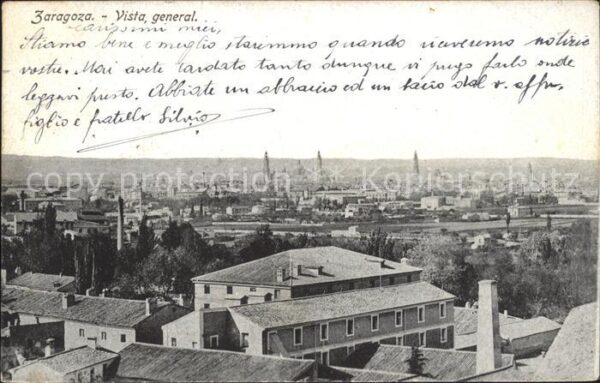 Zaragoza. - Vista general.
Carissimi miei,
Stiamo bene e meglio staremmo quando riceveremo notizie
vostre. Mai avete tardato tanto dunque vi prego farlo onde
leggervi presto. Abbiate un abbraccio ed un bacio dal v. affmo
figlio e fratello Silvio
copy protection Kopierschutz